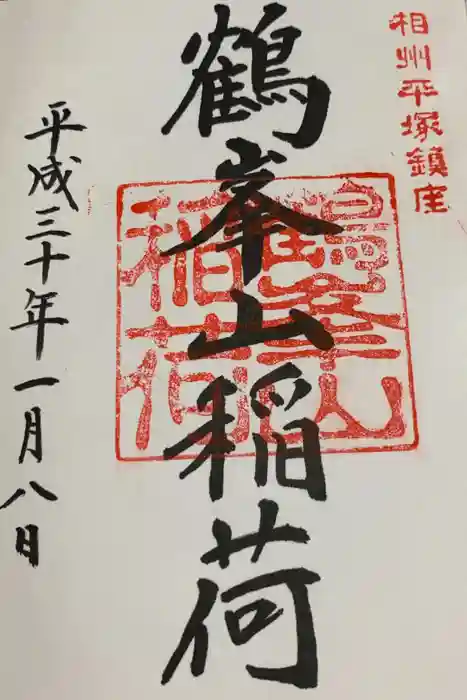 相州平塚鎮座
鶴峯山稲荷
鶴峯山
稲荷
平成三十年一月八日